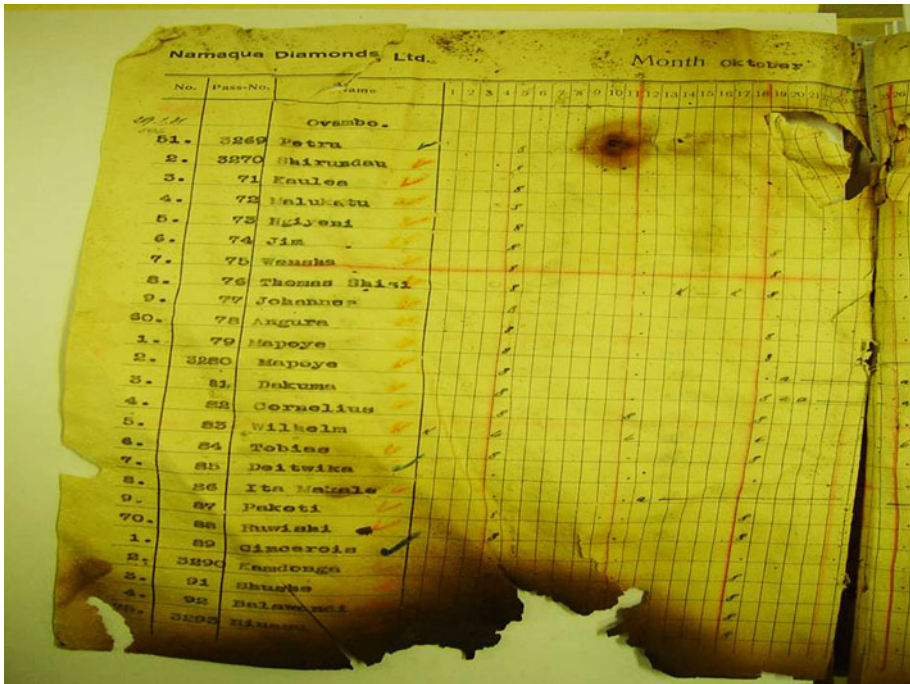 Namaqua Diamonds, Ltd. Month Oktober
No. Pass-No. Name 1 2 3 4 5 6 7 8 9 10 11 12 13 14 15 16 17 18 19 20 21 26
Ovambo.
51. 3269 Petru
2. 3270 Shirundau
3. 71 Kaulea
4. 72 Malukatu
5. 73 Ngiyeni
6. 74 Jim
7. 75
8. 76 Thomas
9. 77 Johannes
60. 78 Angura
1. 79 Mapoye
2. 3280 Mapoye
3. 81 Dakuma
4. 82 Cornelius
5. 83 Wilhelm
6. 84 Tobias
7. 85 Deitwika
8. 86 Ita
9. 87 Pakoti
70. 88 Ruwiski
1. 89 Cincerois
2. 3290 Kamdonga
3. 91
4. 92
3293